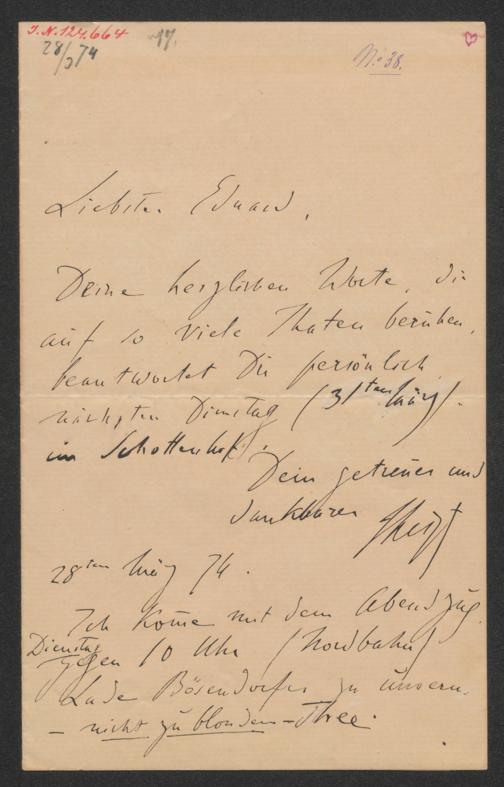 I.N. 124.664
28/3 74
No 38.
Liebster Eduard,
Deine herzlichen Worte, die
auf so viele Thaten beruhen,
beantwortet Dir persönlich
nächsten Dienstag (31ten März)
im Schottenhof,
Dein getreuer und
dankbarer
FLiszt
28ten März 74.
Ich kom̄e mit dem Abendzug
Dienstag
gegen 10 Uhr (Nordbahn)
Lade Bösendorfer zu unsern
– nicht zu blonden – Thee.